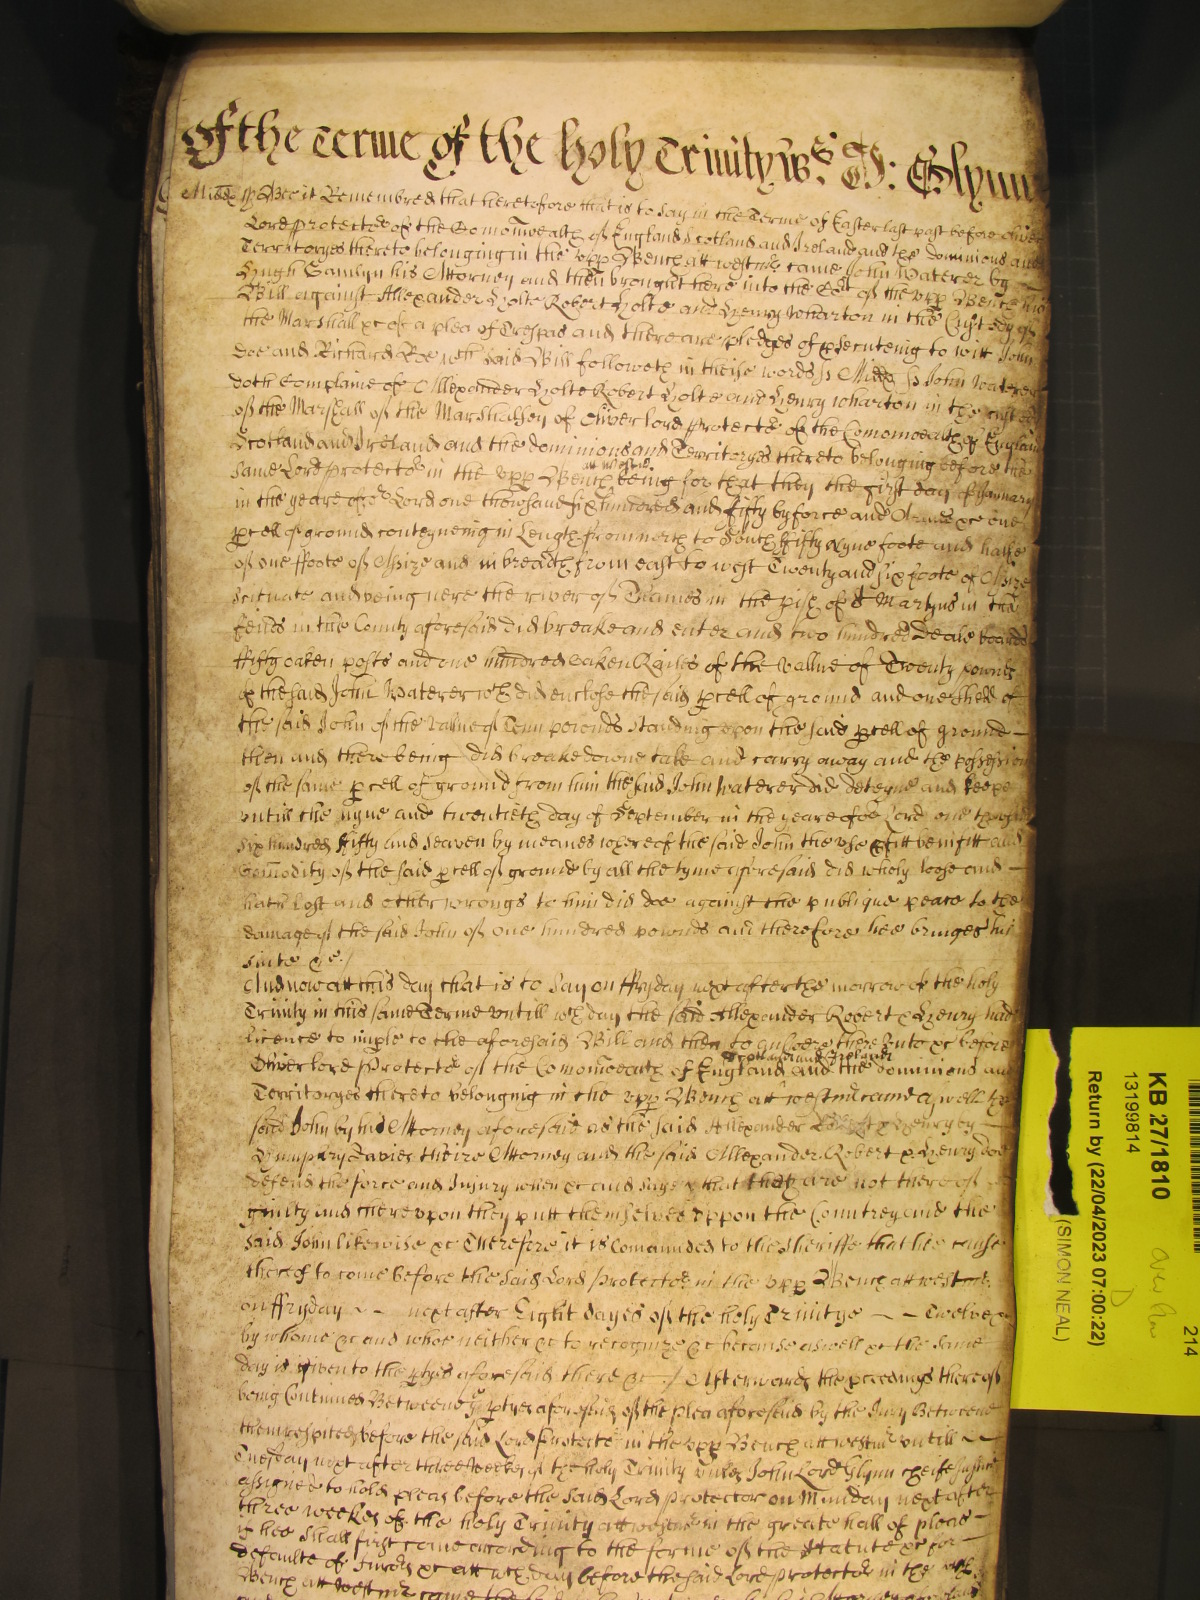 Of the Terme of the holy Trinity, ws: J: Glynn
Midd. ss Bee it Remembred that heretofore that is to say in the Terme of Easter last past before Oliver
Lord protector of the Comonwealth of England Scotland and Ireland and the dominions and
Territoryes thereto belonging in the upp Bench att westmr came John Waterer by
Hugh Hamlyn his Attorney and then brought here into the Cort of the upp Bench his
Bill against Allexander Holte Robert Holte and Henry Wharton in the Custody of
the Marshall &c of a plea of Trespas and there are pledges of psecuteing to witt John
Doe and Richard Roe wch said Bill followeth in theise words ss Midd ss John Waterer
doth Complaine of Allexander Holte Robert Holte and Henry Wharton in the custody
of the Marshall of the Marshalsey of Oliver lord protector of the Comonwealth of England
Scotland and Ireland and the dominions and Territoryes thereto belonging before the
same Lord protector in the upp Bench att Westmr being for that they the first day of January
in the yeare of or Lord one thowsand six hundred and fifty by force and Armes &c one
pcell of ground conteyneing in Length from north to South ffifty Nyne foote and halfe
of one ffoote of Assize and in breadth from east to west Twenty and six foote of Assize
scituate and being nere the river of Thames in the pish of St Martyns in the
feilds in the County aforesaid did breake and enter and two hundred Deale boards
ffifty oaken posts and one hundred oaken Railes of the vallue of Twenty pounds
of the said John Waterer wch did enclose the said pcell of ground and one shedd of
the said John of the value of Tenn pounds standing upon the said pcell of ground
then and there being did breake downe take and carry away and the possession
of the same pcell of ground from him the said John Waterer did deteyne and keepe
untill the nyne and twentieth day of September in the yeare of or Lord one thowsand
six hundred fifty and seaven by meanes whereof the said John the use pfitt benifitt and
Comodity of the said pcell of ground by all the tyme aforesaid did wholy loose and
hath Lost and other wrongs to him did doe against the publique peace to the
damage of the said John of one hundred pounds and therefore hee bringes his
suite &c /
And now att this day that is to say on ffryday next after the morrow of the holy
Trinity in this same Terme untill wch day the said Allexander Robert & Henry had
licence to imple to the aforesaid Bill and then to answere thereunto &c before
Oliver lord Protector of the Comonwealth of England Scotland and Ireland and the dominions and
Territoryes thereto belonging in the upp Bench att westmr came aswell the
said John by his Attorney aforesaid as the said Allexander Robert & Henry by
Humphry Davies theire Attorney and the said Allexander Robert & Henry doe
defend the force and Injury when &c and saye that they are not thereof
guilty and thereupon they putt themselves uppon the Countrey and the
said John likewise &c Therefore it is Comaunded to the Sheriffe that hee cause
thereof to come before the said Lord Protector in the upp Bench att westmr
on ffryday next after Eight dayes of the holy Trinitye Twelve &c
by whome &c and whoe neither &c to recognize &c because aswell &c the same
day is given to the ptyes aforesaid there &c / Afterwards the pceedings thereof
being Continued Betweene ye ptyes aforesaid of the plea aforesaid by the Jury Betweene
them respited before the said Lord Protector in the upp Bench att westmr untill
Tuesday next after three weekes of the holy Trinity unles John Lord Glynn cheife Justice
assigned to hold pleas before the said Lord Protector on Munday next after
three weekes of the holy Trinity att westmr in the greate hall of pleas
if hee shall first come according to the forme of the Statute &c for
defaulte of Jurors &c att wch day before the said Lord protector in the upp
Bench att westmr came the said
KB 27/1810
13199814
Return by (22/04/2023 07:00:22)
(SIMON NEAL)
214